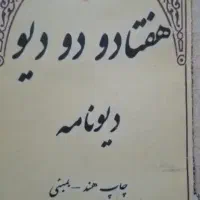 هفتادو دو دیو
دیونامه
چاپ هند - بمبئی